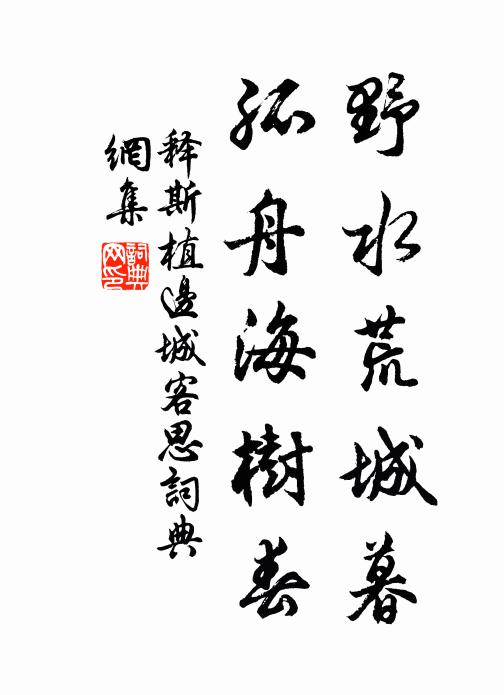 野水荒城暮
孤舟海樹春
释斯植邊城客思詞典
網集
詞典网印